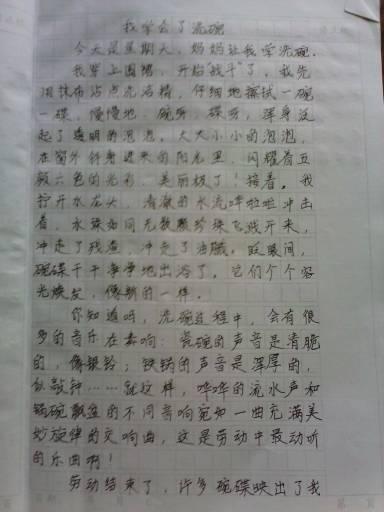 我学会了洗碗
今天是星期天，妈妈让我学洗碗。
我穿上围裙，开始"战斗"了，我先
用抹布沾点洗洁精，仔细地擦试一碗
一碟，慢慢地，碗身、碟旁，浑身泛
起了透明的泡泡，大大小小的泡泡，
在窗外斜身进来的阳光里，闪耀着五
颜六色的光彩，美丽极了！接着，我
拧开水龙头，清澈的水流哗啦啦冲击
着，水珠如同无数颗珍珠飞溅开来，
冲走了残渣，冲走了油腻。眨眼间，
碗碟干干净净地出浴了，它们个个容
光焕发，像新的一样。
你知道吗，洗碗过程中，会有很
多的音乐在奏响：瓷碗的声音是清脆
的，像银铃；铁锅的声音是浑厚的，
似敲钟……就这样，哗哗的流水声和
锅碗飘盆的不同音响宛如一曲充满美
妙旋律的交响曲，这是劳动中最动听
的乐曲啊！
劳动结束了，许多碗碟映出了我